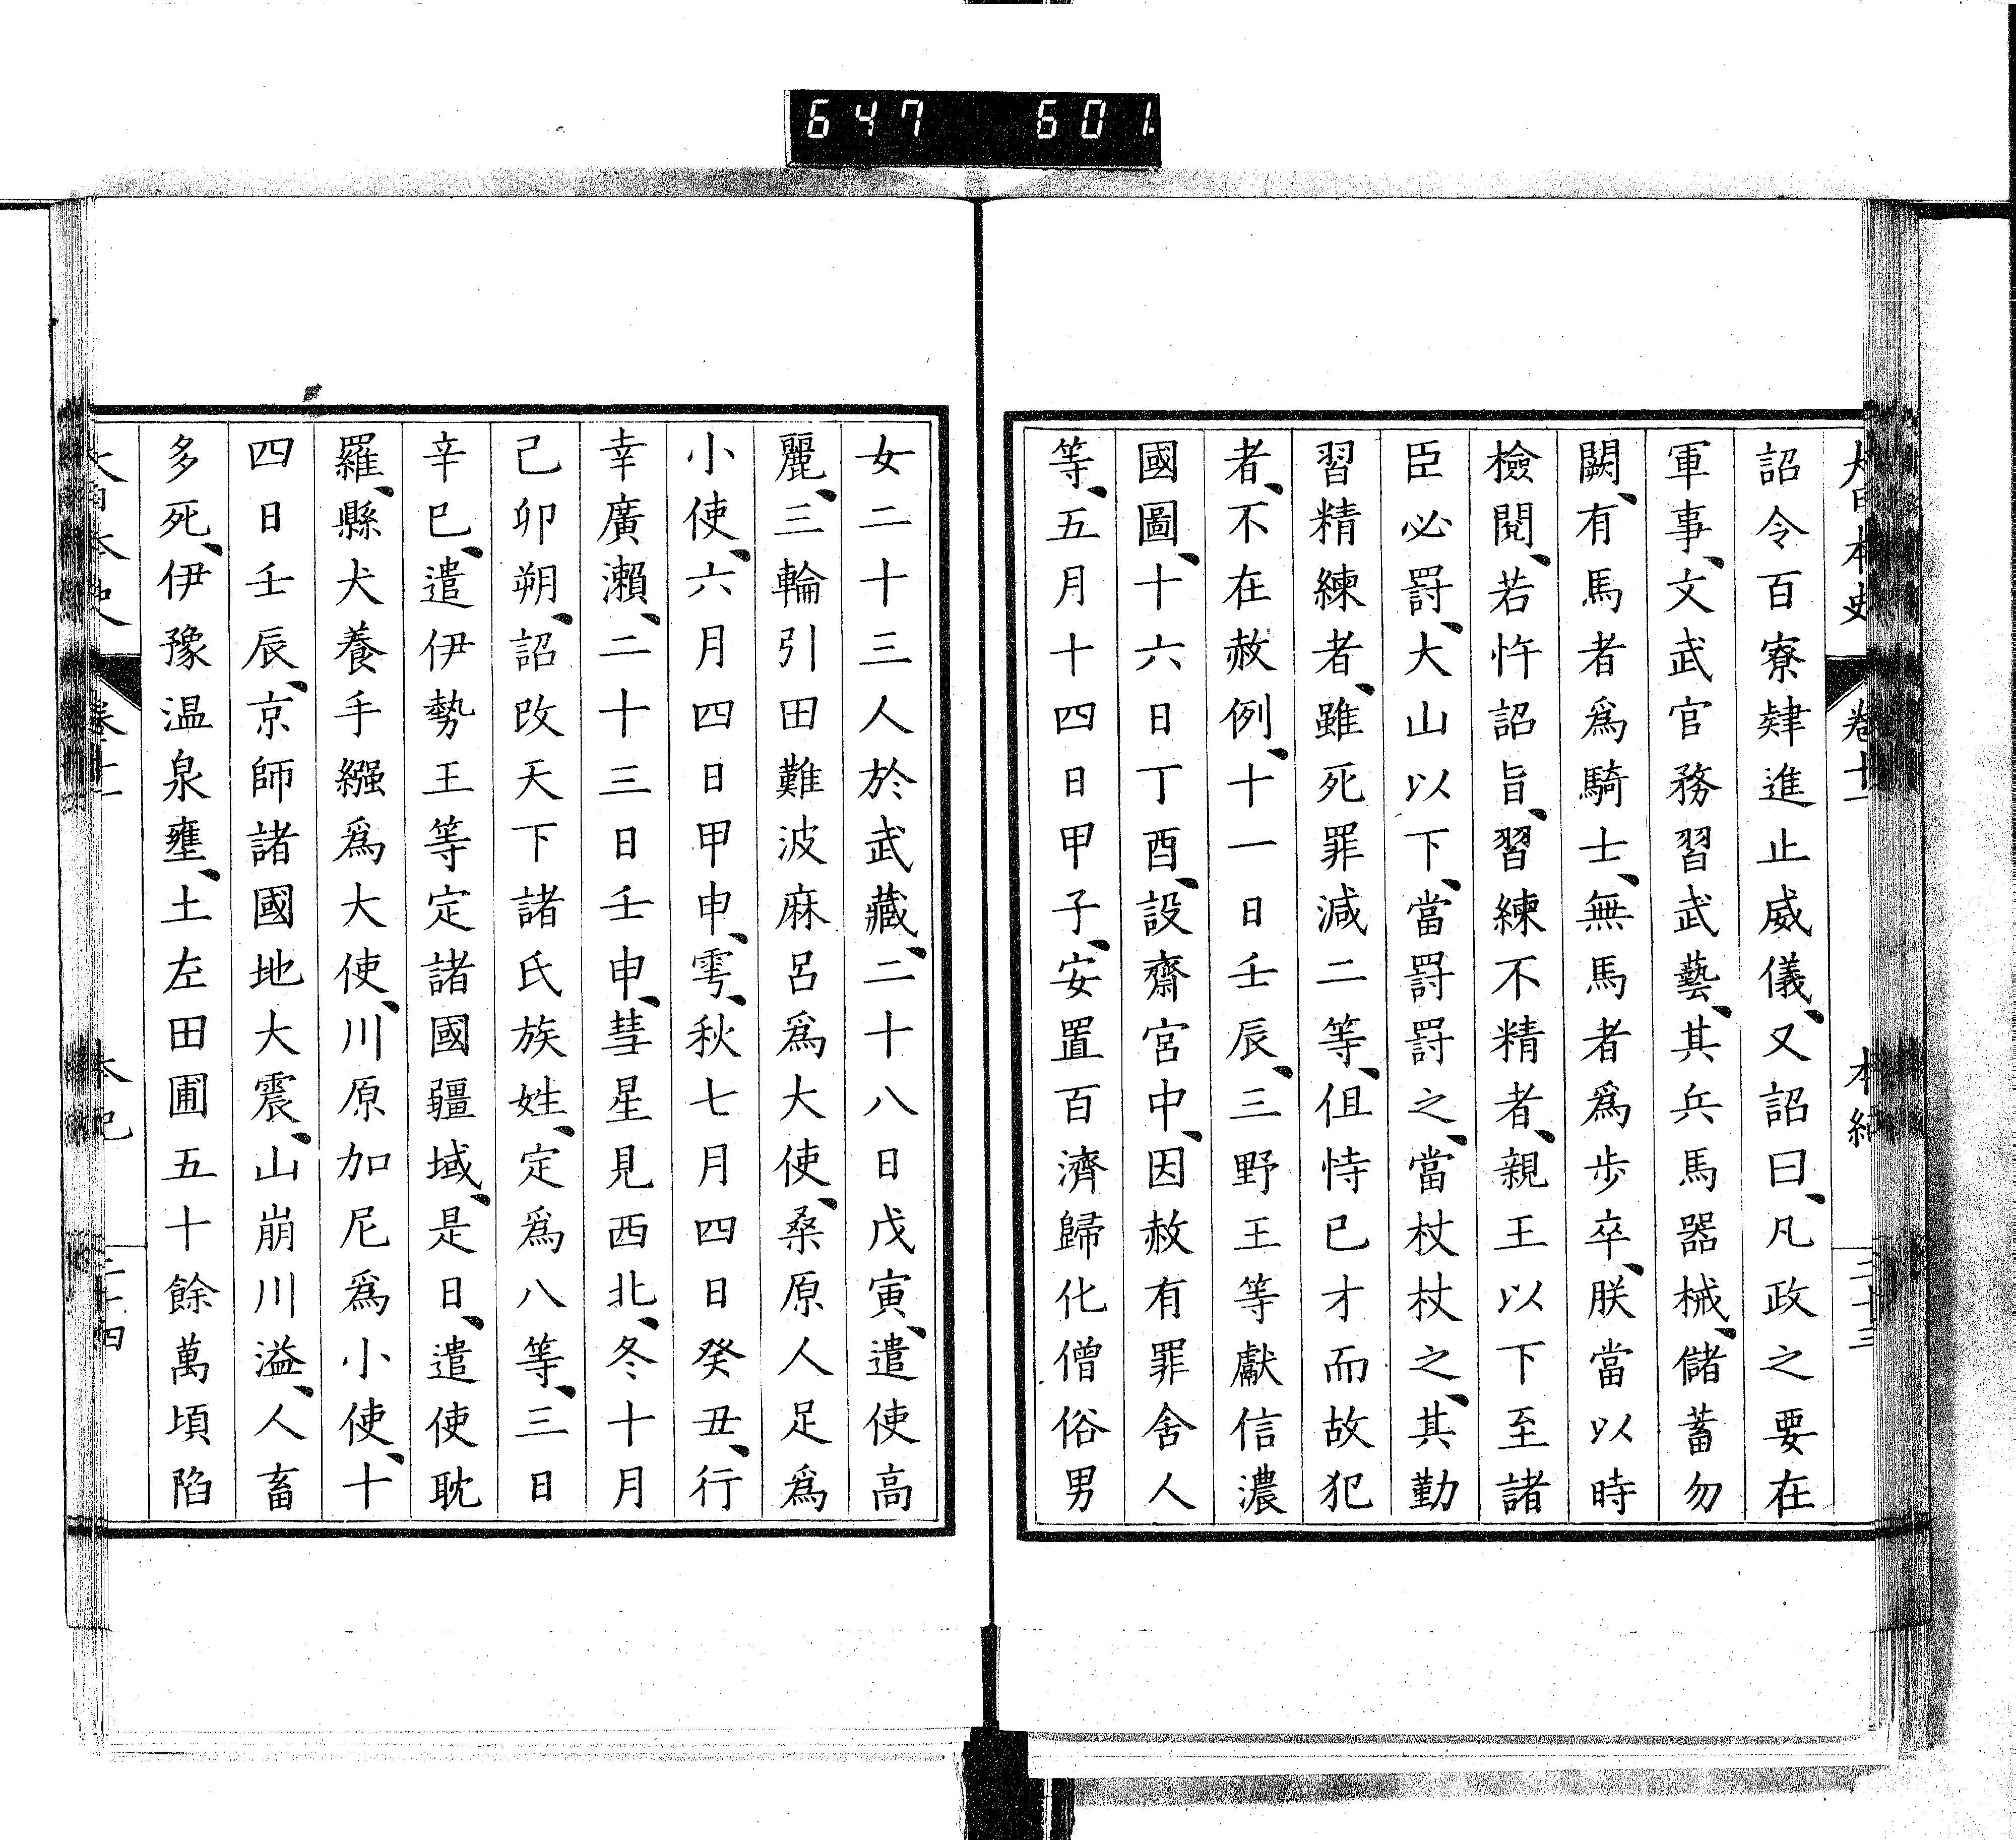 647 601
大日本史 卷十一 本紀 三十三
詔令百寮肄進止威儀、又詔曰、凡政之要在
軍事、文武官務習武藝、其兵馬器械、儲蓄勿
闕、有馬者爲騎士、無馬者爲步卒、朕當以時
檢閱、若忤詔旨、習練不精者、親王以下至諸
臣必罸、大山以下、當罸罸之、當杖杖之、其勤
習精練者、雖死罪減二等、但恃已才而故犯
者、不在赦例、十一日壬辰、三野王等獻信濃
國圖、十六日丁酉、設齋宮中、因赦有罪舍人
等、五月十四日甲子、安置百濟歸化僧俗男
女二十三人於武藏、二十八日戊寅、遣使高
麗、三輪引田難波麻呂爲大使、桑原人足爲
小使、六月四日甲申、雩、秋七月四日癸丑、行
幸廣瀨、二十三日壬申、彗星見西北、冬十月
己卯朔、詔改天下諸氏族姓、定爲八等、三日
辛巳、遣伊勢王等定諸國疆域、是日、遣使耽
羅、縣犬養手繦爲大使、川原加尼爲小使、十
四日壬辰、京師諸國地大震、山崩川溢、人畜
多死、伊豫温泉壅、土左田圃五十餘萬頃陷
大日本史 卷十一 本紀 三十四